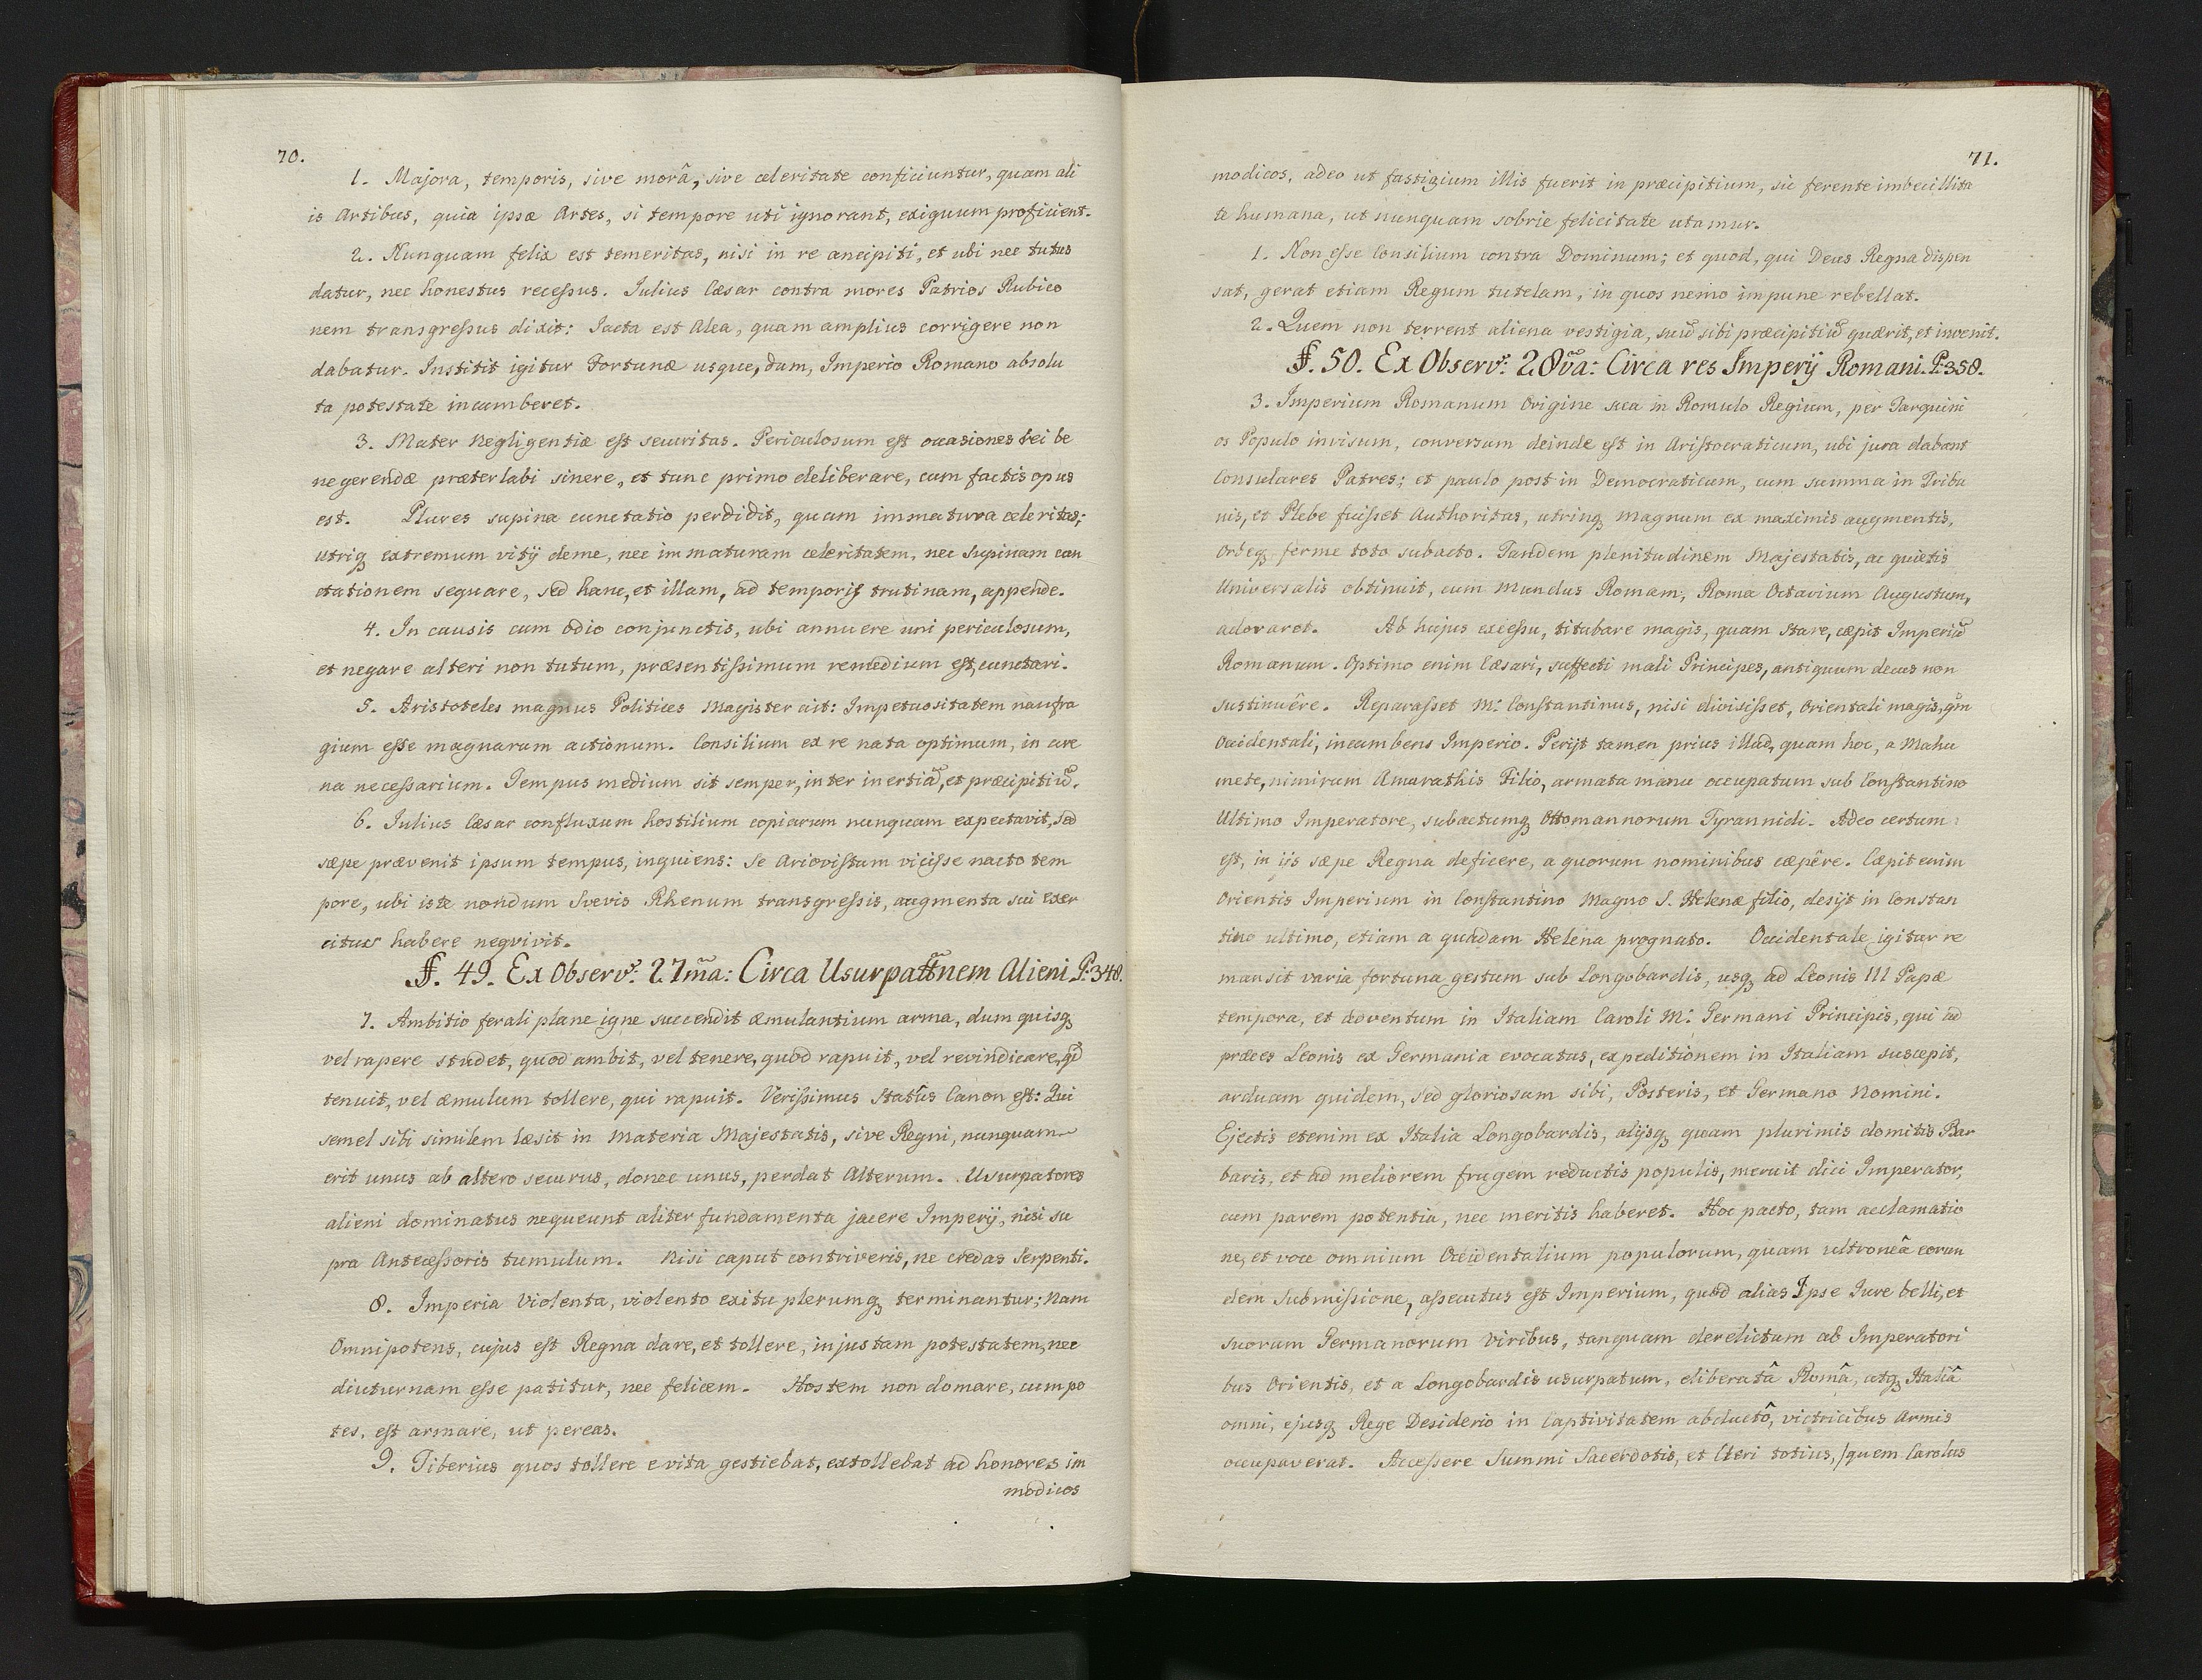 70.
1. Majora, temporis, sive morâ, sive celeritate conficiuntur, quam ali
is Artibus, quia ipsæ Artes, si tempore uti ignorant, exiguum proficient.
2. Nunquam felix est temeritas, nisi in re ancipiti, et ubi nec tutus
datur, nec honestus recessus. Julius Cæsar contra mores Patrios Rubico
nem transgressus dixit: Jacta est Alea, quam amplius corrigere non
dabatur. Institit igitur Fortunæ usque, dum, Imperio Romano absolu
ta potestate incumberet.
3. Mater Negligentiæ est securitas. Periculosum est occasiones rei be
ne gerendæ præterlabi sinere, et tunc primo deliberare, cum factis opus
est. Plures supina cunctatio perdidit, quam immatura celeritas;
utriq extremum vitij deme, nec immaturam celeritatem, nec supinam cun
ctationem sequare, sed hanc, et illam, ad temporis trutinam, appende.
4. In causis cum odio conjunctis, ubi annuere uni periculosum,
et negare alteri non tutum, præsentissimum remedium est, cunctari.
5. Aristoteles magnus Politices Magister ait: Impetuositatem naufra
gium esse magnarum actionum. Consilium ex re nata optimum, in are
na necessarium. Tempus medium sit semper, inter inertiã, et præcipitiũ.
6. Julius Cæsar confluxum hostilium copiarum nunquam expectavit, sed
sæpe prævenit ipsum tempus, inquiens: Se Ariovistum vicisse nacto tem
pore, ubi iste nondum Svevis Rhenum transgressis, augmenta sui exer
citus habere neqvivit.
§. 49. Ex Observ: 27mã: Circa Usurpattñem Alieni. P: 348.
7. Ambitio ferali plane igne succendit æmulantium arma, dum quisq
vel rapere studet, quod ambit, vel tenere, quod rapuit, vel revindicare, qd
tenuit, vel æmulum tollere, qui rapuit. Verissimus Statûs Canon est: Qui
semel sibi similem læsit in Materia Majestatis, sive Regni, nunquam
erit unus ab altero securus, donec unus, perdat Alterum. Usurpatores
alieni dominatus nequeunt aliter fundamenta jacere Imperij, nisi su
pra Antecessoris tumulum. Nisi caput contriveris, ne credas Serpenti.
8. Imperia Violenta, violento exitu plerumq terminantur; Nam
Omnipotens, cujus est Regna dare, et tollere, injustam potestatem, nec
diuturnam esse patitur, nec felicem. Hostem non domare, cum po
tes, est armare, ut pereas.
9. Tiberius quos tollere e vita gestiebat, extollebat ad honores im
modicos
71.
modicos, adeo ut fastigium illis fuerit in præcipitium, sic ferente imbecillita
te humana, ut nunquam sobrie felicitate utamur.
1. Non esse Consilium contra Dominum; et quod, qui Deus Regna dispen
sat, gerat etiam Regum tutelam, in quos nemo impune rebellat.
2. Quem non terrent aliena vestigia, suũ sibi præcipitiũ quærit, et invenit.
§. 50. Ex Observ: 28va: Circa res Imperij Romani. P: 358.
3. Imperium Romanum Origine sua in Romulo Regium, per Tarquini
os Populo invisum, conversum deinde est in Aristocraticum, ubi jura dabant
Consulares Patres; et paulo post in Democraticum, cum summa in Tribu
nis, et Plebe fuisset Authoritas, utrinq magnum ex maximis augmentis,
Orbeq ferme toto subacto. Tandem plenitudinem Majestatis, ac quietis
Universalis obtinuit, cum Mundus Romam, Roma Octavium Augustum,
adoraret. Ab hujus excessu, titubare magis, quam stare, cæpit Imperiũ
Romanum. Optimo enim Cæsari, suffecti mali Principes, antiquum decus non
sustinuêre. Reparasset M: Constantinus, nisi divisisset, Orientali magis, qm
Occidentali, incumbens Imperio. Perijt tamen prius illud, quam hoc, a Mahu
mete, nimirum Amurathis Filio, armata manu occupatum sub Constantino
Ultimo Imperatore, subactumq Ottomannorum Tyrannidi. Adeo certum
est, in ijs sæpe Regna deficere, a quorum nominibus cæpêre. Cæpit enim
Orientis Imperium in Constantino Magno S. Helenæ filio, desijt in Constan
tino ultimo, etiam a quadam Helena prognato. Occidentale igitur re
mansit varia fortuna gestum sub Longobardis, usq ad Leonis III Papæ
tempora, et adventum in Italiam Caroli M: Germani Principis, qui ad
præces Leonis ex Germania evocatus, expeditionem in Italiam suscepit,
arduam quidem, sed gloriosam sibi, Posteris, et Germano Nomini.
Ejectis etenim ex Italia Longobardis, alijsq quam plurimis domitis Bar
baris, et ad meliorem frugem reductis populis, meruit dici Imperator,
cum parem potentia, nec meritis haberet. Hoc pacto, tam acclamatio
ne, et voce omnium Occidentalium populorum, quam ultroneâ eorun
dem Submissione, assecutus est Imperium, quod alias Ipse Jure belli, et
suorum Germanorum viribus, tanquam derelictum ab Imperatori
bus Orientis, et a Longobardis usurpatum, eliberatâ Româ, atq Italiâ
omni, ejusq Rege Desiderio in Captivitatem abductô, victricibus Armis
occupaverat. Accessere Summi Sacerdotis, et Cleri totius, /quem Carolus